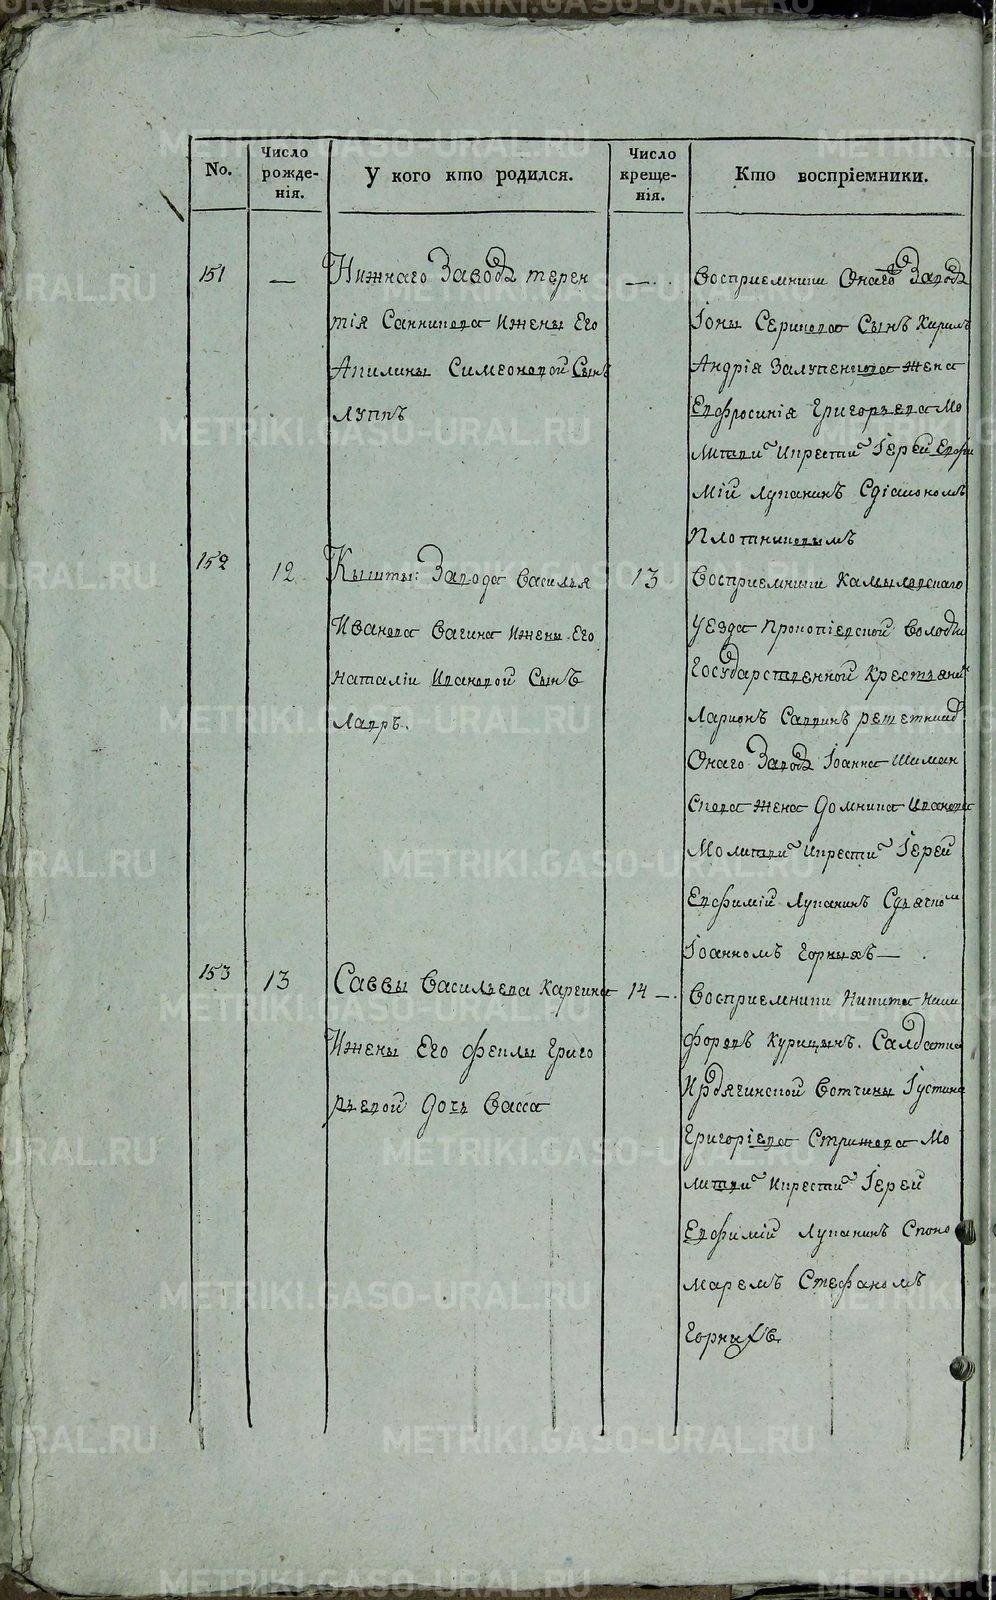 No.
Число рожде-нія.
У кого кто родился.
Число креще-нія.
Кто воспріемники.
151
—
Нижнаго Заводѣ терен
тія Санникова Ижены Его
Акилины Симеоновой Сынъ
луппъ
—.
Восприемники Онаго Завода
Іоны Серикова Сынъ Кирилъ
Андрія Залупенкова Жена
Евфросинія Григорьева Мо
литви Икрести Іерей Евфи
мій лупанинъ Сдіакономъ
Плотниковымъ
152
12
Кышты: Завода Василья
Иванова Вагина Ижены Его
Наталіи Ивановой Сынъ
Лавръ.
13
Восприемники Камыловскаго
Уезда Прокопіевской Волости
Государственной Крестьянинъ
Ларионъ Саввинъ
Онаго Завода Іоанна Шиман
скова Жена Домника Иванова
Молитви Икрести Іерей
Евфимій Лупанинъ Сдьячкомъ
Іоанномъ Горныхъ — .
153
13
Саввы Васильева Каргина
Ижены Его феклы Григо
рьевой Дочь Васса
14 —.
Восприемники Никита Ники
форовъ Курицынъ. Салдатка
Вотчины Іустина
Григоріева Стрижева Мо
литви Икрести Іерей
Евфимій Лупанинъ Споно
маремъ Стефаномъ
Горныхъ
METRIKI.GASO-URAL.RU